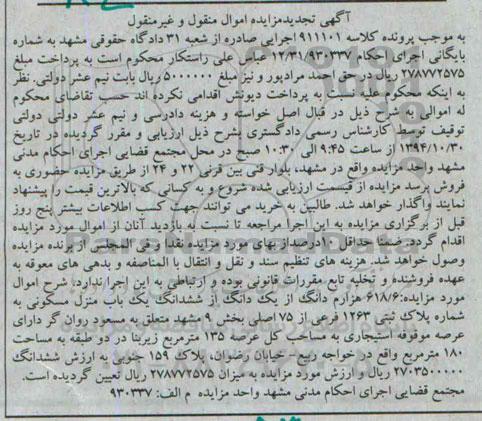 آگهی تجدیدمزایده اموال منقول و غیرمنقول
به موجب پرونده کلاسه ۹۱۱۱۰۱ اجرایی صادره از شعبه ۳۱ دادگاه حقوقی مشهد به شماره
بایگانی اجرای احکام ۱۲/۳۱/۹۳۰۳۳۷ عباس علی راستکار محکوم است به پرداخت مبلغ
۲۷۸۷۷۲۵۷۵ ریال در حق احمد مرادپور و نیز مبلغ ۵۰۰۰۰۰۰ ریال بابت نیم عشر دولتی. نظر
به اینکه محکوم علیه نسبت به پرداخت دیونش اقدامی نکرده اند حسب تقاضای محکوم
له اموالی به شرح ذیل در قبال اصل خواسته و هزینه دادرسی و نیم عشر دولتی دولتی
توقیف توسط کارشناس رسمی دادگستری بشرح ذیل ارزیابی و مقرر گردیده در تاریخ
۱۳۹۴/۱۰/۳۰ از ساعت ۹:۴۵ الی ۱۰:۳۰ صبح در محل مجتمع قضایی اجرای احکام مدنی
مشهد واحد مزایده واقع در مشهد، بلوار قنی بین قرنی ۲۲ و ۲۴ از طریق مزایده حضوری به
فروش برسد مزایده از قیمت ارزیابی شده شروع و به کسانی که بالاترین قیمت را پیشنهاد
نمایند واگذار خواهد شد. طالبین به خرید می توانند جهت کسب اطلاعات بیشتر پنج روز
قبل از برگزاری مزایده به این اجرا مراجعه تا نسبت به بازدید آنان از اموال مورد مزایده
اقدام گردد. ضمنا حداقل ۱۰درصد از بهای مورد مزایده نقدا و فی المجلس از برنده مزایده
وصول خواهد شد. هزینه های تنظیم سند و نقل و انتقال با المناصفه و بدهی های معوقه به
عهده فروشنده و تخلیه تابع مقررات قانونی بوده و ارتباطی به این اجرا ندارد. شرح اموال
مورد مزایده: ۶۱۸/۶ هزارم دانگ از یک دانگ از ششدانگ یک باب منزل مسکونی به
شماره پلاک ثبتی ۱۲۶۳ فرعی از ۷۵ اصلی بخش ۹ مشهد متعلق به مسعود روان گر دارای
عرصه موقوفه استیجاری به مساحت کل عرصه ۱۳۵ مترمربع زیربنا در دو طبقه به مساحت
۱۸۰ مترمربع واقع در خواجه ربیع- خیابان رضوان، پلاک ۱۵۹ جنوبی به ارزش ششدانگ
۲۷۰۳۵۰۰۰۰۰ ریال و ارزش مورد مزایده به میزان ۲۷۸۷۷۲۵۷۵ ریال تعیین گردیده است.
مجتمع قضایی اجرای احکام مدنی مشهد واحد مزایده م الف: ۹۳۰۳۳۷